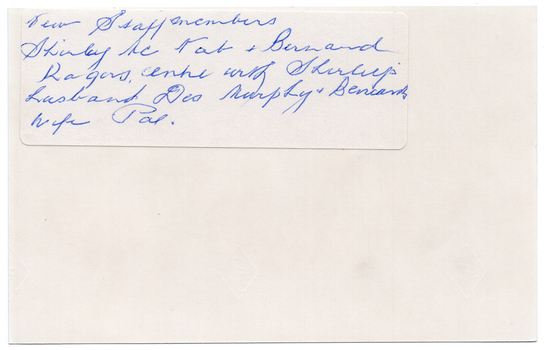 New Staff members
Shirley Mc Nab + Bernard
Rogers, centre with Shirley's
husband Des Murphy + Bernards
wife Pat.